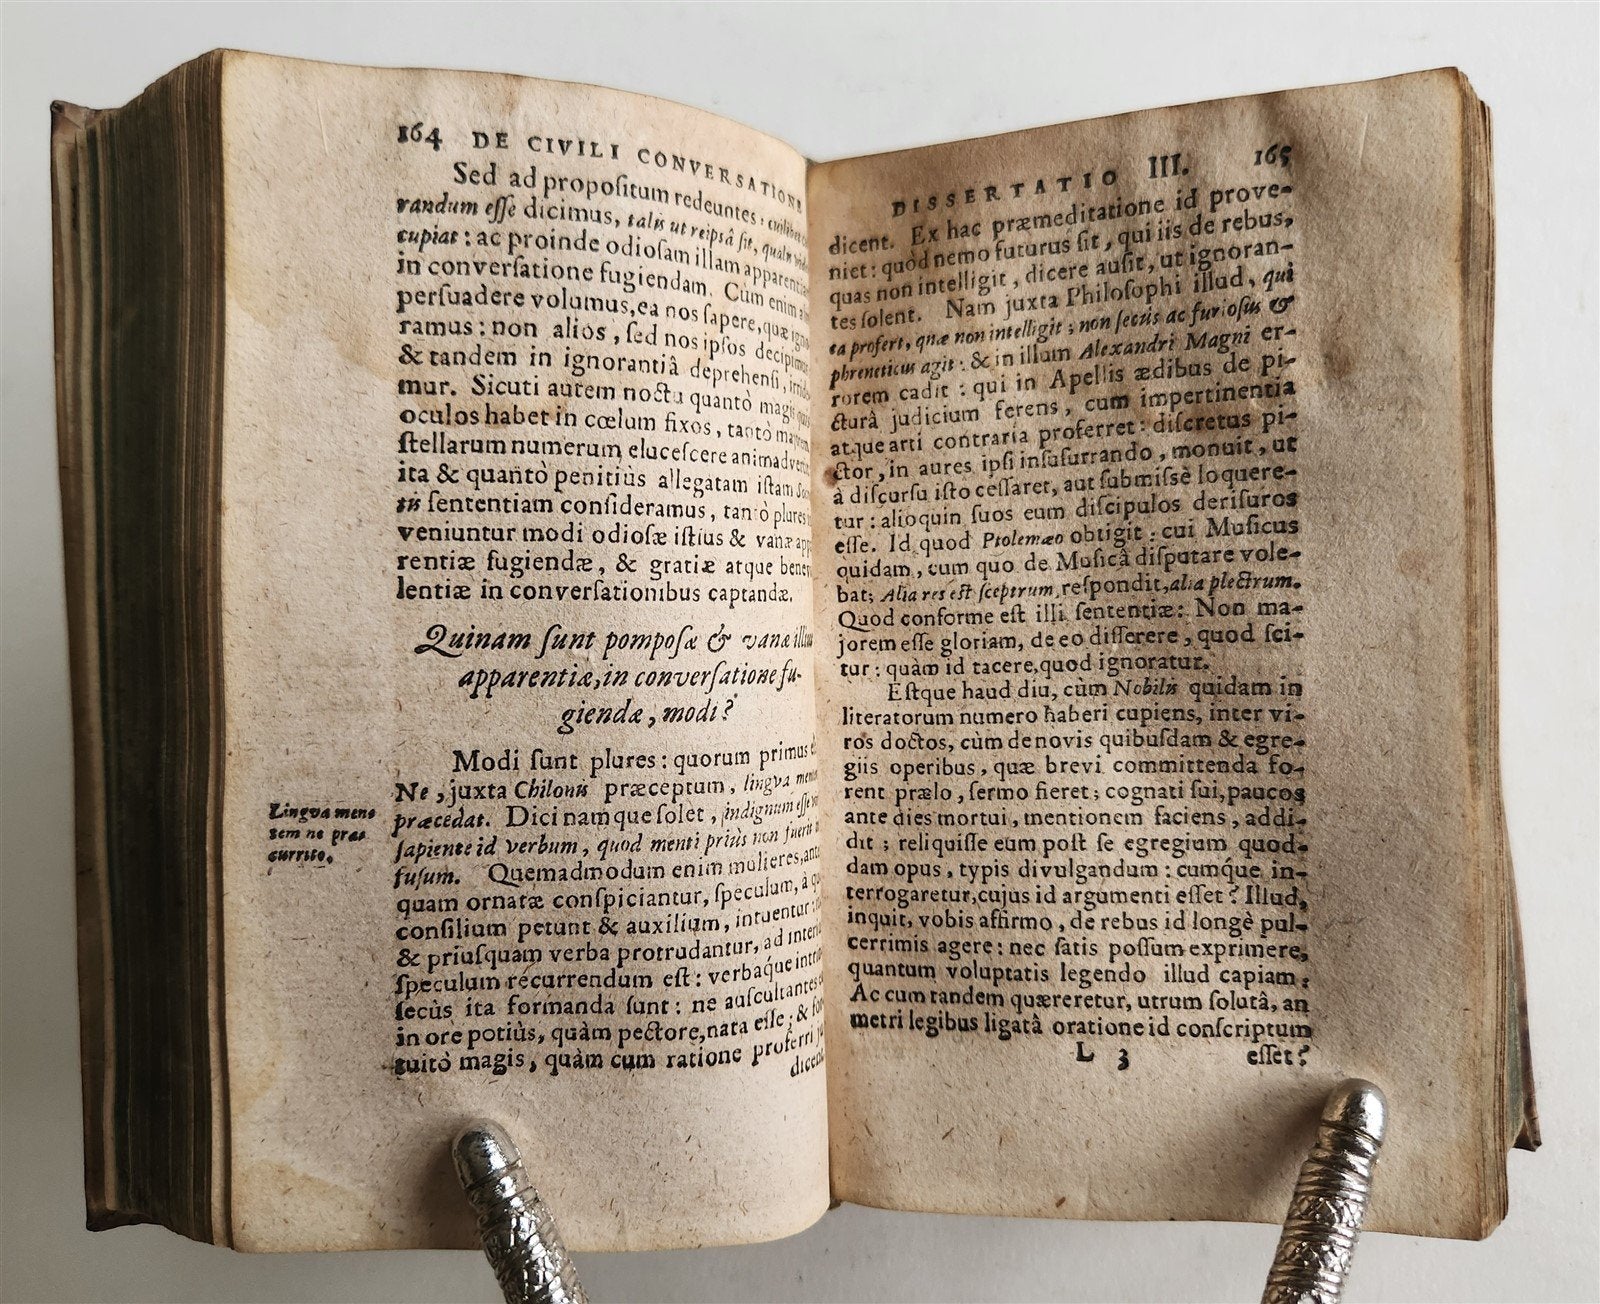 164 DE CIVILI CONVERSATIONE
Sed ad propoſitum redeuntes:
randum eſſe dicimus, talis ut reipsâ ſit,
cupiat: ac proinde odioſam illam
in converſatione fugiendam. Cùm enim
perſuadere volumus, ea nos ſapere, quæ
ramus: non alios, ſed nos ipſos
& tandem in ignorantiâ deprehenſi,
mur. Sicuti autem noctu quantò magis
oculos habet in cœlum fixos, tantò
ſtellarum numerum eluceſcere
ita & quantò penitiùs allegatam iſtam
tis ſententiam conſideramus, tantò plures
veniuntur modi odioſæ iſtius & vanæ
rentiæ fugiendæ, & gratiæ atque
lentiæ in converſationibus captandæ.
Quinam ſunt pompoſæ & vanæ
apparentiæ, in converſatione fu-
giendæ, modi?
Modi ſunt plures: quorum primus
Ne, juxta Chilonis præceptum, lingva
præcedat. Dici namque ſolet, indignum eſſe
ſapiente id verbum, quod menti priùs non
fuſum. Quemadmodum enim mulieres,
quam ornatæ conſpiciantur, ſpeculum, à
conſilium petunt & auxilium, intuentur:
& priuſquam verba protrudantur, ad
ſpeculum recurrendum eſt: verbaque
ſecùs ita formanda ſunt: ne auſcultantes
in ore potiùs, quàm pectore, nata eſſe; &
tuitò magis, quàm cum ratione proferri
Lingva men-
tem ne præ-
currito.
DISSERTATIO III. 165
dicent. Ex hac præmeditatione id prove-
niet: quòd nemo futurus ſit, qui iis de rebus,
quas non intelligit, dicere auſit, ut ignoran-
tes ſolent. Nam juxta Philoſophi illud, qui
ea profert, quæ non intelligit; non ſecùs ac furioſus &
phreneticus agit: & in illum Alexandri Magni er-
rorem cadit: qui in Apellis ædibus de pi-
cturâ judicium ferens, cum impertinentia
atque arti contraria proferret: diſcretus pi-
ctor, in aures ipſi inſuſurrando, monuit, ut
à diſcurſu iſto ceſſaret, aut ſubmiſsè loquere-
tur: alioquin ſuos eum diſcipulos deriſuros
eſſe. Id quod Ptolemæo obtigit: cui Muſicus
quidam, cum quo de Muſicâ diſputare vole-
bat; Alia res eſt ſceptrum, reſpondit, alia plectrum.
Quod conforme eſt illi ſententiæ: Non ma-
jorem eſſe gloriam, de eo differere, quod ſci-
tur: quàm id tacere, quod ignoratur.
Eſtque haud diu, cùm Nobilis quidam in
literatorum numero haberi cupiens, inter vi-
ros doctos, cùm de novis quibuſdam & egre-
giis operibus, quæ brevi committenda fo-
rent prælo, ſermo fieret; cognati ſui, paucos
ante dies mortui, mentionem faciens, addi-
dit; reliquiſſe eum poſt ſe egregium quod-
dam opus, typis divulgandum: cumque in-
terrogaretur, cujus id argumenti eſſet? Illud,
inquit, vobis affirmo, de rebus id longè pul-
cerrimis agere: nec ſatis poſſum exprimere,
quantum voluptatis legendo illud capiam.
Ac cum tandem quæreretur, utrum ſolutâ, an
metri legibus ligatâ oratione id conſcriptum
L 3 eſſet?